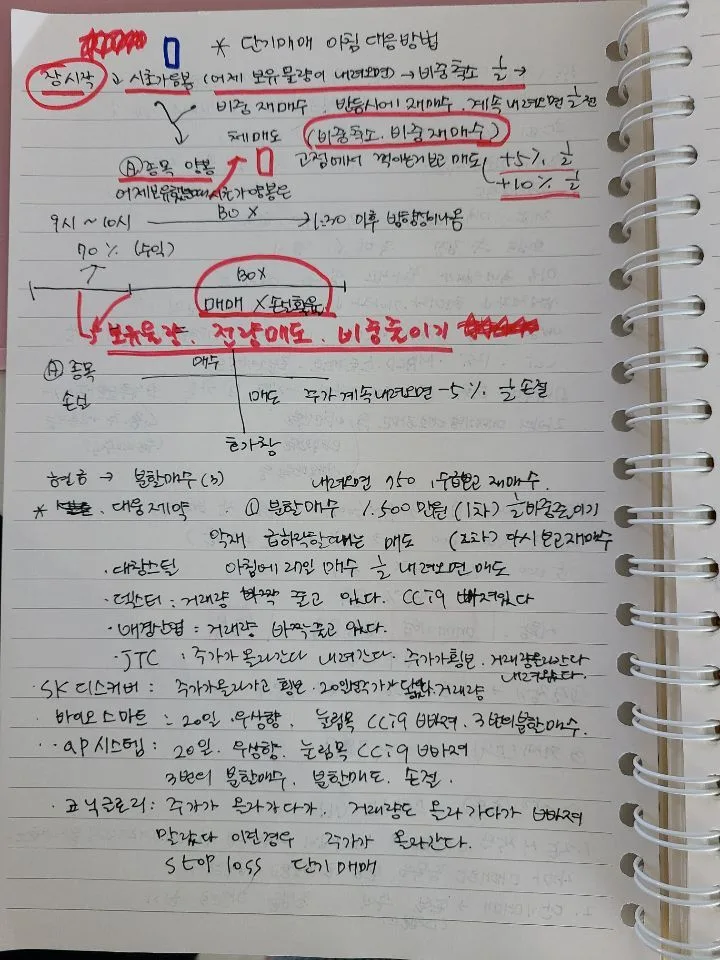 * 단기매매 아침 대응방법
장시작 ↓ 시초가음봉 (어제 보유물량이 내려오면) → 비중축소 ½ →
비중 재매수. 반등시에 재매수. 계속 내려오면 ½
전매도 (비중축소. 비중 재매수)
Ⓐ 종목 양봉 고점에서 꺾이는거보고 매도 +5% ½
+10% ½
어제보유했던 시초가양봉은
9시 ~ 10시 BOX → 1:30 이후 방향성이나옴
70% (수익)
BOX
매매 X 손실확율
보유물량. 전량매도. 비중줄이기
Ⓐ 종목 매수
손실 매도 주가 계속내려오면 -5% ½ 손절
호가창
현금 → 분할매수 (3) 내려오면 수급보고 재매수.
* 대웅제약 ① 분할매수 1.500 만원 (1차) ½ 비중줄이기
악재 급하락할때는 매도 (2차) 다시보고재매수
· 대창스틸 아침에 20일 매수 ½ 내려오면 매도
· 덱스터 : 거래량 바짝 줄고 있다. CCi9 빠져있다
· 배경산업 : 거래량 바짝줄고 있다.
· JTC : 주가가 올라간다 내려간다. 주가가횡보. 거래량올라간다
내려온다.
· SK디스커버 : 주가가올라가고 횡보. 20일 거래량
· 바이오스마트 : 20일. 우상향. 눌림목 CCi9 빠져. 3번의분할매수.
· ap시스템 : 20일. 우상향. 눌림목 CCi9 빠져
3번의 분할매수. 분할매도. 손절.
· 코닉글로리 : 주가가 올라가다가. 거래량도 올라가다가 빠져
말랐다 이런경우 주가가 올라간다.
stop loss 단기매매